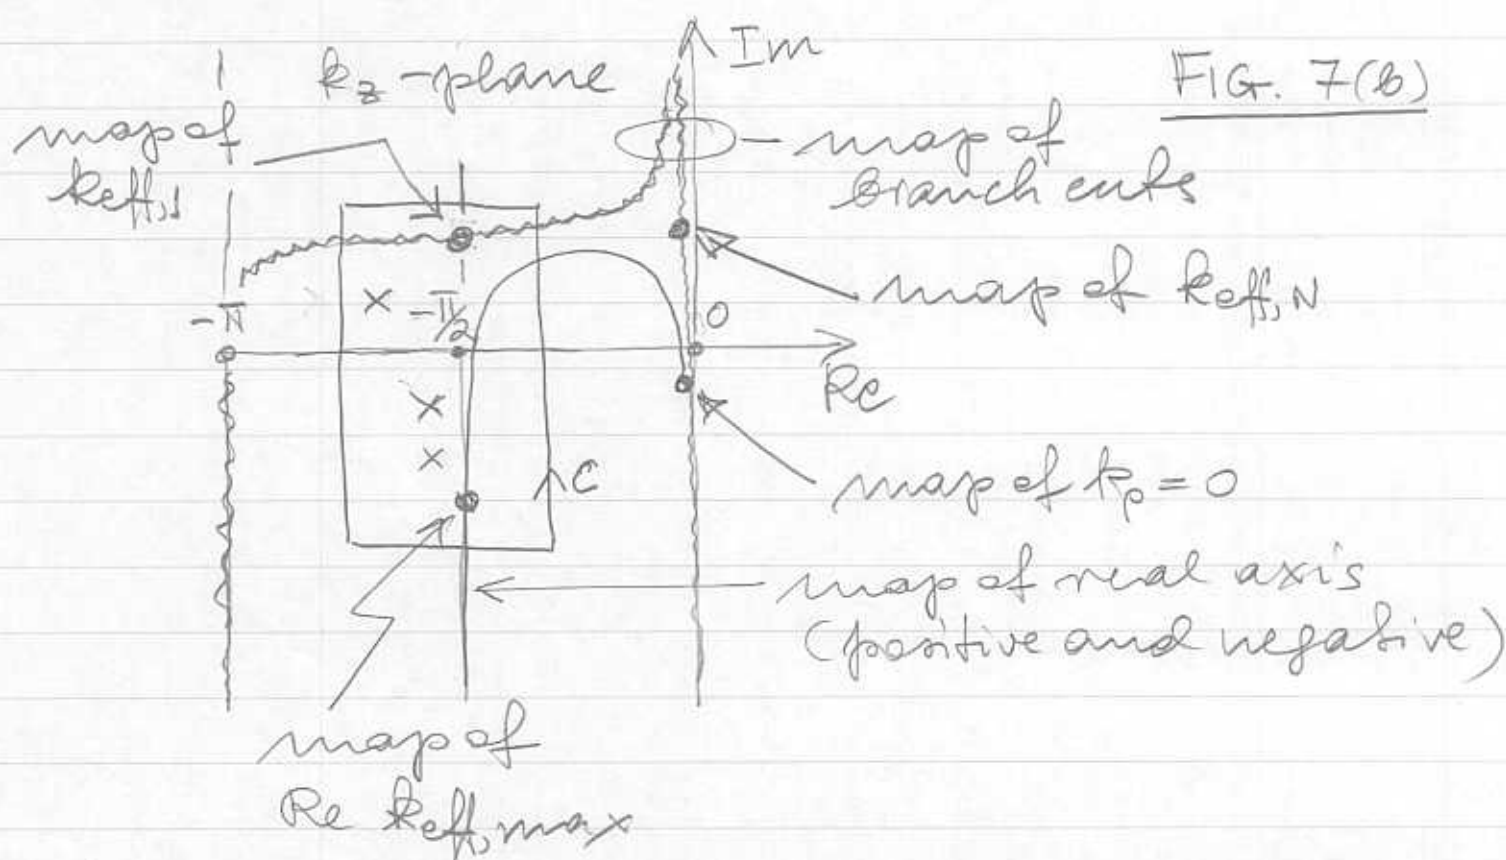 Im
FIG. 7(b)
k_z-plane
map of
k_eff,1
map of
branch cuts
map of k_eff,N
-π
-π/2
0
Re
C
map of k_ρ = 0
map of real axis
(positive and negative)
map of
Re k_eff,max